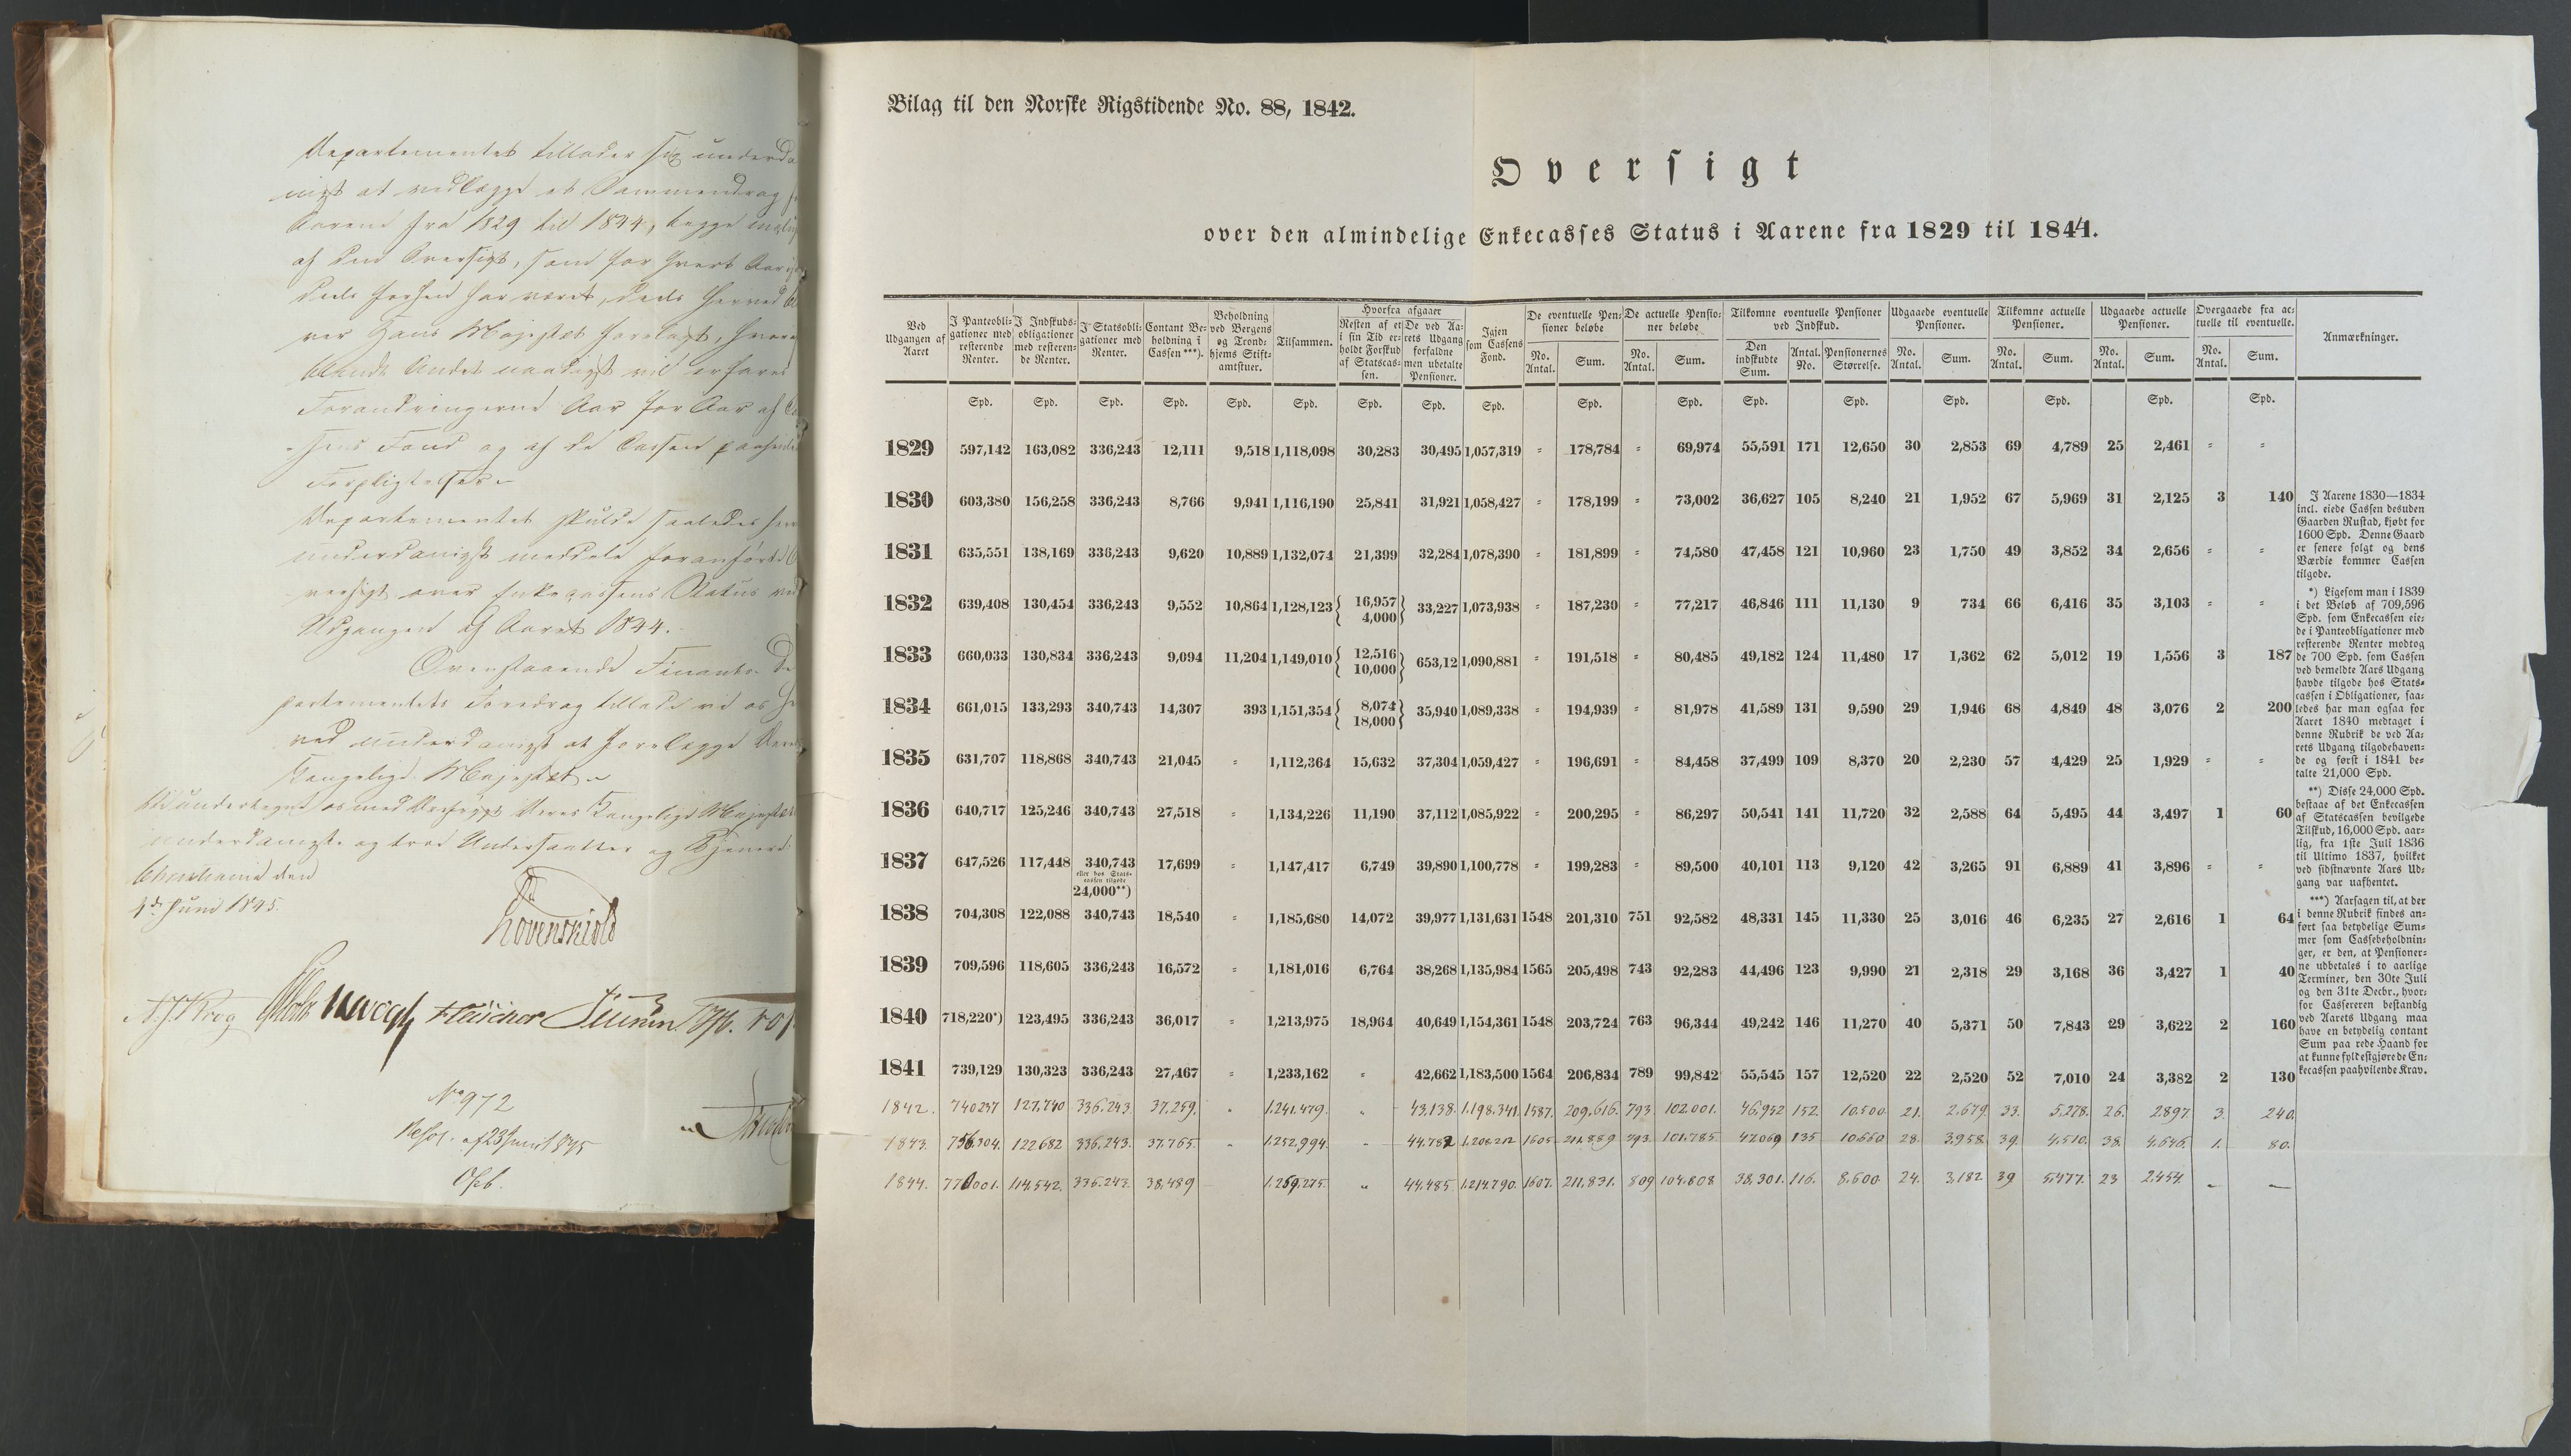 Departementet tillader sig underda
nigst at vedlægge et Sammendrag
Aarene fra 1829 til 1844, begge incl
af den Oversigt, som for hvert Aar
deels forhen har været, deels herved bli
ver Hans Majestæt forelagt, hvor
blandt Andet naadigst vil erfares
Forandringerne Aar for Aar af Cas
sens Fond og af de Cassen paahvilende
Forpligtelser.
Departementet skulde saaledes her
underdanigst meddele foranførte O
versigt over Enkecassens Status ved
Udgangen af Aaret 1844.
Ovenstaaende Finants-De
partements Foredrag tillade vi os her
ved underdanigst at forelægge Deres
Kongelige Majestæt
underdanigste og troe Undersaatter og Tjenere
Christiania den
4de Juni 1845.
Løvenskiold
N. J. Krog Vogt Fleischer
No 972
Resol. af 23 Juni 1845
Bilag til den Norske Rigstidende No. 88, 1842.
Oversigt
over den almindelige Enkecasses Status i Aarene fra 1829 til 1844.
Ved Udgangen af Aaret | I Panteobligationer med resterende Renter. | I Indskudsobligationer med resterende Renter. | I Statsobligationer med Renter. | Contant Beholdning i Cassen ***). | Beholdning ved Bergens og Trondhjems Stiftamtstuer. | Tilsammen. | Hvorfra afgaaer | Resten af et i sin Tid erholdt Forskud af Statscassen. | De ved Aarets Udgang forfaldne men ubetalte Pensioner. | Igjen som Cassens Fond. | De eventuelle Pensioner beløbe | No. Antal. | Sum. | De actuelle Pensioner beløbe | No. Antal. | Sum. | Tilkomne eventuelle Pensioner ved Indskud. | Den indskudte Sum. | Antal. No. | Pensionernes Størrelse. | Udgaaede eventuelle Pensioner. | No. Antal. | Sum. | Tilkomne actuelle Pensioner. | No. Antal. | Sum. | Udgaaede actuelle Pensioner. | No. Antal. | Sum. | Overgaaede fra actuelle til eventuelle. | No. Antal. | Sum. | Anmærkninger.
Spd. Spd. Spd. Spd. Spd. Spd. Spd. Spd. Spd. Spd. Spd. Spd. Spd. Spd. Spd. Spd. Spd.
1829 597,142 163,082 336,243 12,111 9,518 1,118,098 30,283 30,495 1,057,319 = 178,784 = 69,974 55,591 171 12,650 30 2,853 69 4,789 25 2,461 = =
1830 603,380 156,258 336,243 8,766 9,941 1,116,190 25,841 31,921 1,058,427 = 178,199 = 73,002 36,627 105 8,240 21 1,952 67 5,969 31 2,125 3 140
1831 635,551 138,169 336,243 9,620 10,889 1,132,074 21,399 32,284 1,078,390 = 181,899 = 74,580 47,458 121 10,960 23 1,750 49 3,852 34 2,656 = =
1832 639,408 130,454 336,243 9,552 10,864 1,128,123 { 16,957 4,000 } 33,227 1,073,938 = 187,230 = 77,217 46,846 111 11,130 9 734 66 6,416 35 3,103 = =
1833 660,033 130,834 336,243 9,094 11,204 1,149,010 { 12,516 10,000 } 653,12 1,090,881 = 191,518 = 80,485 49,182 124 11,480 17 1,362 62 5,012 19 1,556 3 187
1834 661,015 133,293 340,743 14,307 393 1,151,354 { 8,074 18,000 } 35,940 1,089,338 = 194,939 = 81,978 41,589 131 9,590 29 1,946 68 4,849 48 3,076 2 200
1835 631,707 118,868 340,743 21,045 = 1,112,364 15,632 37,304 1,059,427 = 196,691 = 84,458 37,499 109 8,370 20 2,230 57 4,429 25 1,929 = =
1836 640,717 125,246 340,743 27,518 = 1,134,226 11,190 37,112 1,085,922 = 200,295 = 86,297 50,541 141 11,720 32 2,588 64 5,495 44 3,497 1 60
1837 647,526 117,448 340,743 eller hos Statscassen tilgode 24,000**) 17,699 = 1,147,417 6,749 39,890 1,100,778 = 199,283 = 89,500 40,101 113 9,120 42 3,265 91 6,889 41 3,896 = =
1838 704,308 122,088 340,743 18,540 = 1,185,680 14,072 39,977 1,131,631 1548 201,310 751 92,582 48,331 145 11,330 25 3,016 46 6,235 27 2,616 1 64
1839 709,596 118,605 336,243 16,572 = 1,181,016 6,764 38,268 1,135,984 1565 205,498 743 92,283 44,496 123 9,990 21 2,318 29 3,168 36 3,427 1 40
1840 718,220*) 123,495 336,243 36,017 = 1,213,975 18,964 40,649 1,154,361 1548 203,724 763 96,344 49,242 146 11,270 40 5,371 50 7,843 29 3,622 2 160
1841 739,129 130,323 336,243 27,467 = 1,233,162 = 42,662 1,183,500 1564 206,834 789 99,842 55,545 157 12,520 22 2,520 52 7,010 24 3,382 2 130
1842. 740237 127.740 336.243 37.259. " 1.241.479. " 43.138. 1.198.341. 1587. 209,616. 793. 102.001. 46.952 152. 10.500 21. 2.679. 33. 5.278. 26. 2897. 3. 240.
1843. 756.304. 122682 336.243. 37.765. " 1.252,994. 44.782 1.208.212 1605 211.889 793. 101.785. 47.069 135 10.660 28. 3.958. 39. 4.510. 38. 4.646. 1. 80.
1844. 770001. 114.542. 336.243. 38.489 1.259.275. " 44.485. 1.214.790. 1607. 211.831. 809 104.808 38.301. 116. 8.600. 24. 3.182 39 5477. 23 2.454.
I Aarene 1830—1834
incl. eiede Cassen desuden
Gaarden Rustad, kjøbt for
1600 Spd. Denne Gaard
er senere solgt og dens
Værdie kommer Cassen
tilgode.
*) Ligesom man i 1839
i det Beløb af 709,596
Spd. som Enkecassen eie-
de i Panteobligationer med
resterende Renter modtog
de 700 Spd. som Cassen
ved bemeldte Aars Udgang
havde tilgode hos Stats-
cassen i Obligationer, saa-
ledes har man ogsaa for
Aaret 1840 medtaget i
denne Rubrik de ved Aa-
rets Udgang tilgodehaven-
de og først i 1841 be-
talte 21,000 Spd.
**) Disse 24,000 Spd.
bestaae af det Enkecassen
af Statscassen bevilgede
Tilskud, 16,000 Spd. aar-
lig, fra 1ste Juli 1836
til Ultimo 1837, hvilket
ved sidstnævnte Aars Ud-
gang var uafhentet.
***) Aarsagen til, at der
i denne Rubrik findes an-
ført saa betydelige Sum-
mer som Cassebeholdnin-
ger, er den, at Pensioner-
ne udbetales i to aarlige
Terminer, den 30te Juli
og den 31te Decbr., hvor-
for Cassereren bestandig
ved Aarets Udgang maa
have en betydelig contant
Sum paa rede Haand for
at kunne fyldestgjøre de En-
kecassen paahvilende Krav.